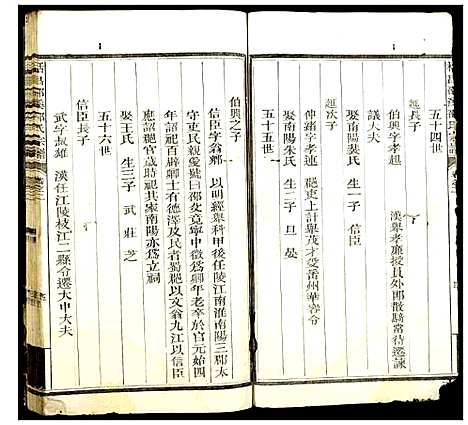 五十四世
延長子
伯興字孝起
漢舉孝廉授員外郎散騎常侍遷諫
議大夫
娶南陽裴氏 生一子 信臣
延次子
伸緒字孝連 郡吏上計舉茂才受番州華容令
娶南陽朱氏 生二子 旦 晏
五十五世
伯興之子
信臣字翁卿 以明經舉科甲後任陵江南淮南陽三郡太
守吏民親愛號曰邵父竟寧中徵為卿年老卒於官元始四
年詔祀百辟卿士有德澤及民者蜀郡以文翁九江以信臣
應詔郡官歲時祀其家南陽亦為立祠
娶王氏 生三子 武 莊 芝
五十六世
信臣長子
武字叔雄 漢任江陵枝江二縣令遷大中大夫